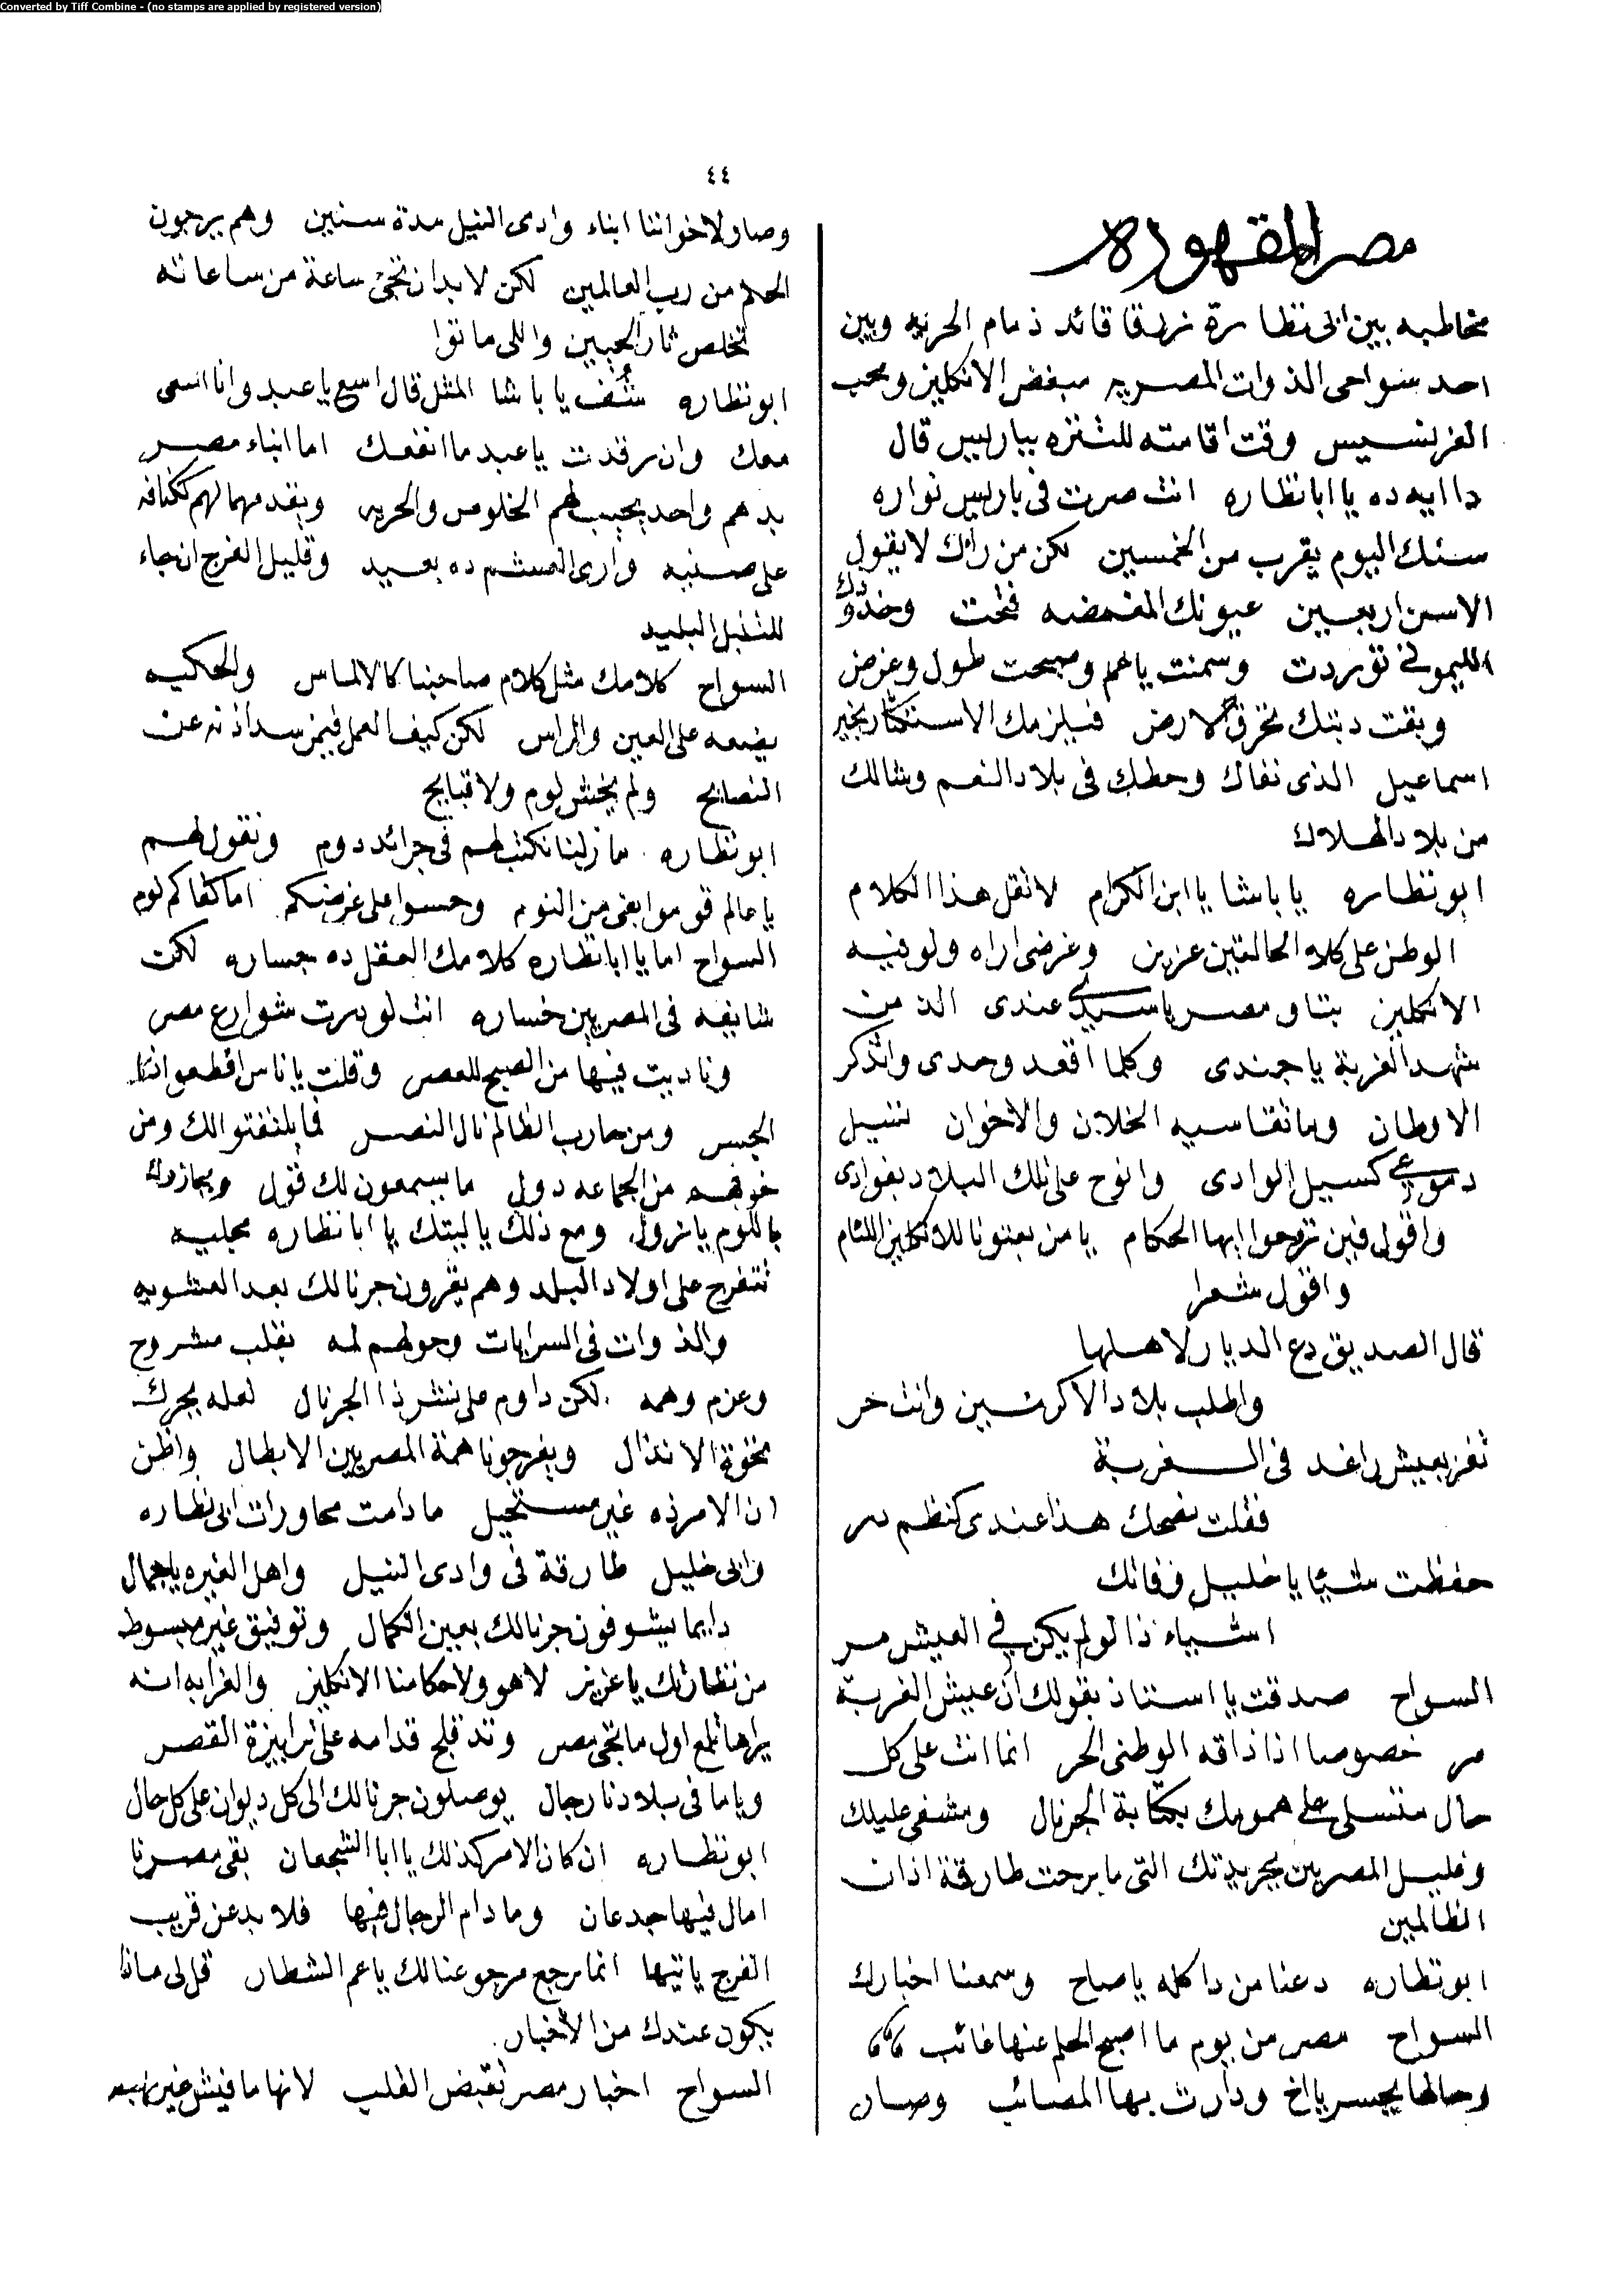 Converted by Tiff Combine - (no stamps are applied by registered version)
٤٤
مصر المقهوره
مخاطبه بين ابى نظارة زرقا قائد زمام الحريه وبين
احد سواحى الذوات المصريه مبغض الانكليز ومحب
الفرنسيس وقت اقامته للتنزه بباريس قال
دا ايه ده يا ابا نظاره انت صرت فى باريس نواره
سنك اليوم يقرب من الخمسين لكن من رآك لا يقول
الا سن اربعين عيونك المغمضه فتحت وخدودك
الليمونى توردت وسمنت يا عم وصبحت طول وعرض
وبقت دبتك تخرق الارض فيلزمك الاستكثار بخير
اسماعيل الذى نفاك وحطك فى بلاد النعم وشالك
من بلاد الهلاك
ابو نظاره يا باشا يا ابن الكرام لا تقل هذا الكلام
الوطن على كلا الحالتين عزيز وغرضى اراه ولو فيه
الانكليز بتاو مصر يا سيدى عندى الذ من
شهد الغربة يا جندى وكلما اقعد وحدى واتذكر
الاوطان وما تقاسيه الخلان والاخوان تسيل
دموعى كسيل الوادى وانوح على تلك البلاد بفوادى
واقول فين تروحوا ايها الحكام يا من بعتونا للانكليز اللئام
واقول شعرا
قال الصديق دع الديار لاهلها
واطلب بلاد الاكرمين وانت حر
تفز بعيش راغد فى الغربة
فقلت نصحك هذا عندى كنظم در
حفظت شيئا يا خليل وفاتك
اشياء ذا لو لم يكن في العيش مر
السواح صدقت يا استاذ بقولك ان عيش الغربة
مر خصوصا اذا ذاقه الوطنى الحر انما انت على كل
حال متسلى على همومك بكتابة الجرنال ومشفى غليلك
وغليل المصريين بجريدتك التى ما برحت طارقة اذان
الظالمين
ابو نظاره دعنا من دا كله يا صاح وسمعنا اخبارك
السواح مصر من يوم ما اصبح الحلم عنها غائب
وحالها يحسر يا اخ ودارت بها المصائب وصار
وصار لاخواننا ابناء وادى النيل مدة سنين وهم يرجون
الحلم من رب العالمين لكن لا بد ان تجئ ساعة من ساعاته
تخلص ثار الحيين واللى ماتوا
ابو نظاره شف يا باشا المثل قال اسع يا عبد وانا اسعى
معك وان رقدت يا عبد ما انفعك اما ابناء مصر
بدهم واحد يجيب لهم الخلوص والحريه ويقدمها لهم ككنافه
على صنيه وارى العشم ده بعيد وقليل الفرج ان جاء
للتنبل البليد
السواح كلامك مثل كلام صاحبنا كالالماس والحكيم
يضعه على العين والراس لكن كيف العمل فيمن سد اذنه عن
النصايح ولم يخش لوم ولا قبايح
ابو نظاره ما زلنا نكتب لهم فى جرائد دوم ونقول لهم
يا عالم قوموا بقى من النوم وحسوا على عرضكم اما كفاكم لوم
السواح اما يا ابا نظاره كلامك العقل ده جساره لكن
شايفه فى المصريين خساره انت لو درت شوارع مصر
وناديت فيها من الصبح للعصر وقلت يا ناس اقطعوا انتا
الجسر ومن حارب الظالم نال النصر فما يلتفتوا لك ومن
خوفهم من الجماعه دول ما يسمعون لك قول ويجازوك
باللوم يا زول ومع ذلك يا ليتك يا ابا نظاره مجليه
تتفرج على اولاد البلد وهم يقرون جرنالك بعد العشويه
والذوات فى السرايات وحولهم لمه بقلب مشروح
وعزم وهمه لكن داوم على نشر ذا الجرنال لعله يحرك
نخوة الانذال ويفرجونا همة المصريين الابطال واظن
ان الامر ذه غير مستحيل ما دامت محاورات ابى نظاره
وابى خليل طارقة فى وادى النيل واهل الغيره يا جمال
دايما يشوفون جرنالك بعين الكمال وتوفيق غير مبسوط
من نظارتك يا عزيز لا هو ولا حكامنا الانكليز والغرابه انه
يراها تلمع اول ما تجى مصر وتدقلج قدامه على ترابيزة القصر
وياما فى بلادنا رجال يوصلون جرنالك الى كل ديوان على كل حال
ابو نظاره ان كان الامر كذلك يا ابا الشجعان بقى مصرنا
امال فيها جدعان وما دام الرجال فيها فلا بد عن قريب
الفرج ياتيها انما مرجع مرجوعنا لك يا عم الشطار قل لى ماذا
يكون عندك من الاخبار
السواح اخبار مصر تقبض القلب لانها ما فيش غير